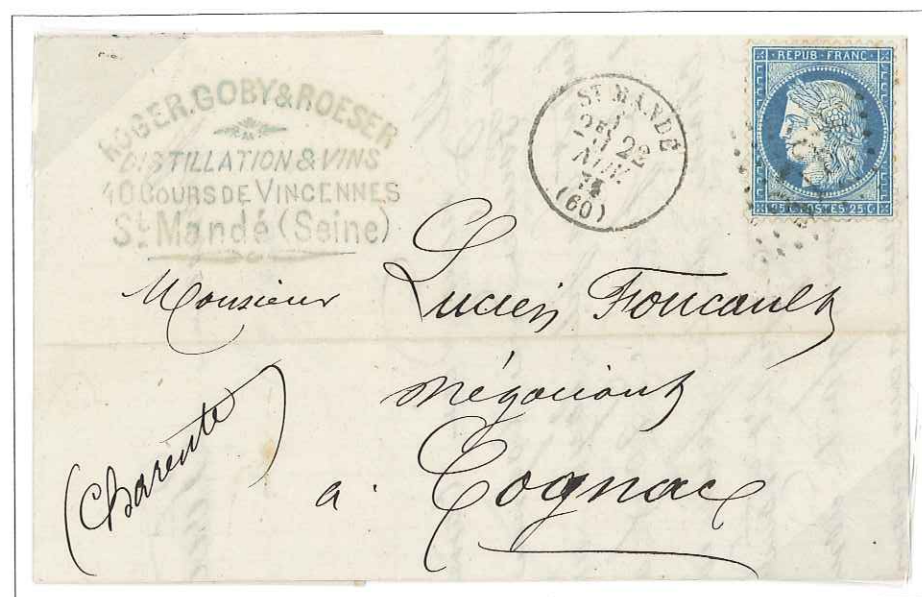 ROGER.GOBY&ROESER
DISTILLATION & VINS
40 COURS DE VINCENNES
St Mandé (Seine)
ST MANDÉ
22
NOV.
(60)
REPUB·FRANC·
POSTES 25 C
Monsieur Lucien Foucault
Négociant
à Cognac
(Charente)